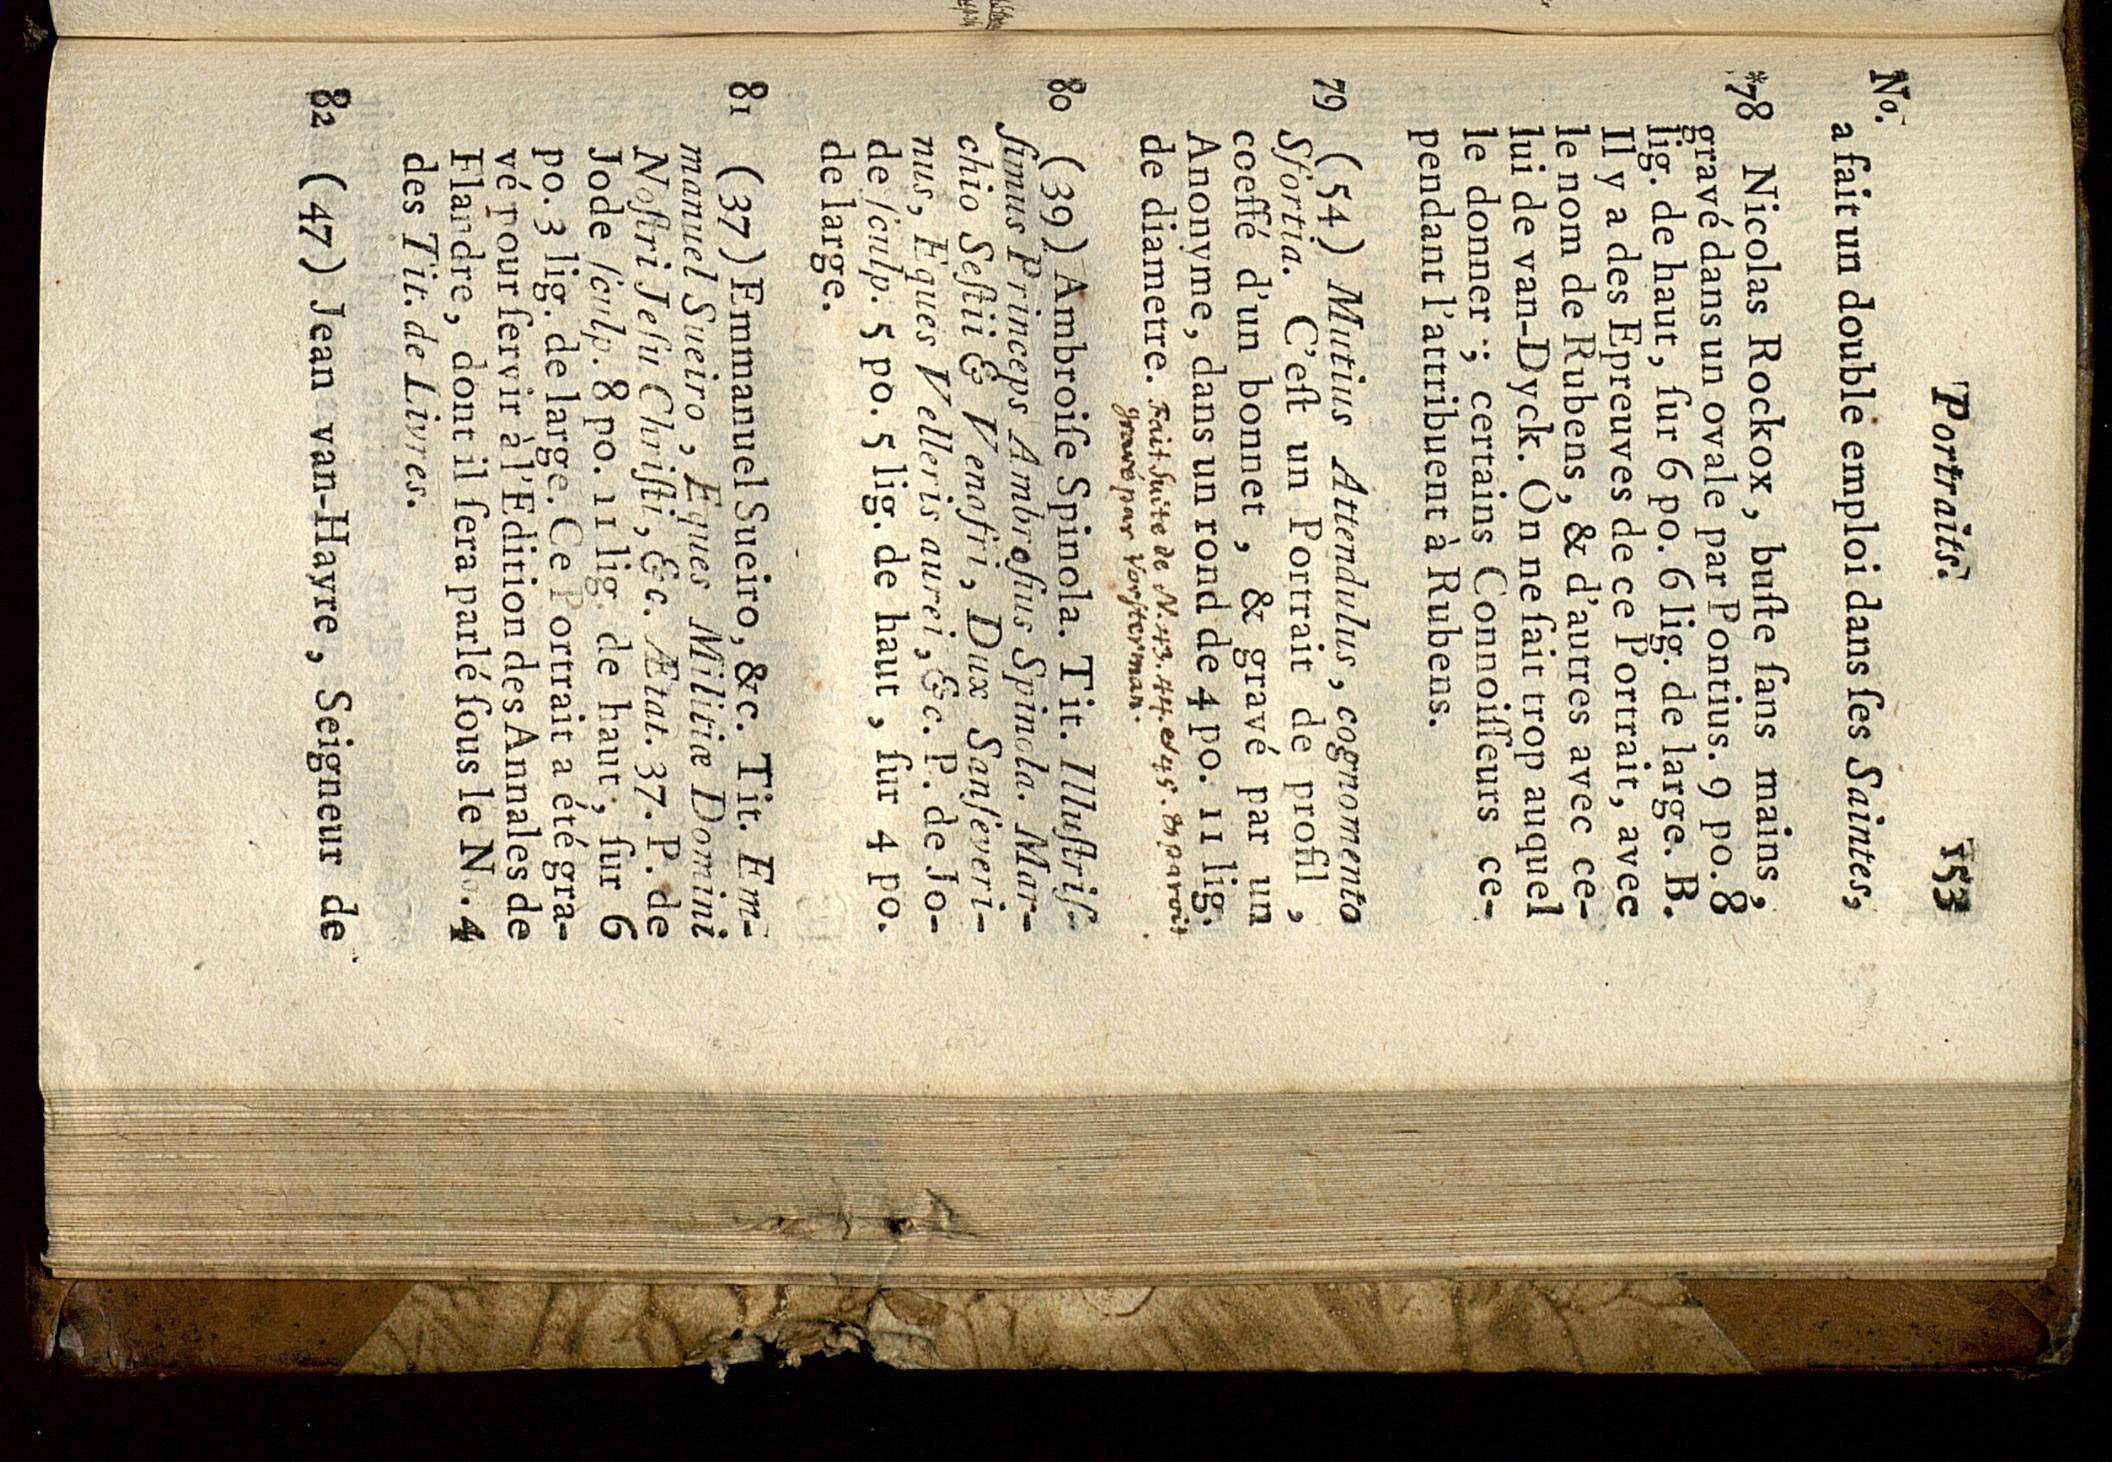 Portraits. 153
No.
a fait un double emploi dans ſes Saintes,
*78 Nicolas Rockox, buſte ſans mains,
gravé dans un ovale par Pontius. 9 po. 8
lig. de haut, ſur 6 po. 6 lig. de large. B.
Il y a des Epreuves de ce Portrait, avec
le nom de Rubens, & d'autres avec ce-
lui de van-Dyck. On ne ſait trop auquel
le donner; certains Connoiſſeurs ce-
pendant l'attribuent à Rubens.
79 (54) Mutius Attendulus, cognomento
Sfortia. C'eſt un Portrait de profil,
coeffé d'un bonnet, & gravé par un
Anonyme, dans un rond de 4 po. 11 lig.
de diametre. Fait Suite de N. 43. 44. et 45. & paroit
gravé par Vorſterman.
80 (39) Ambroiſe Spinola. Tit. Illuſtriſ-
ſimus Princeps Ambroſius Spinola. Mar-
chio Seſtii & Venafri, Dux Sanſeveri-
nus, Eques Velleris aurei, &c. P. de Jo-
de ſculp. 5 po. 5 lig. de haut, ſur 4 po.
de large.
81 (37) Emmanuel Sueiro, &c. Tit. Em-
manuel Sueiro, Eques Militiæ Domini
Noſtri Jeſu Chriſti, &c. Ætat. 37. P. de
Jode ſculp. 8 po. 11 lig. de haut, ſur 6
po. 3 lig. de large. Ce Portrait a été gra-
vé pour ſervir à l'Edition des Annales de
Flandre, dont il ſera parlé ſous le No. 4
des Tit. de Livres.
82 (47) Jean van-Hayre, Seigneur de